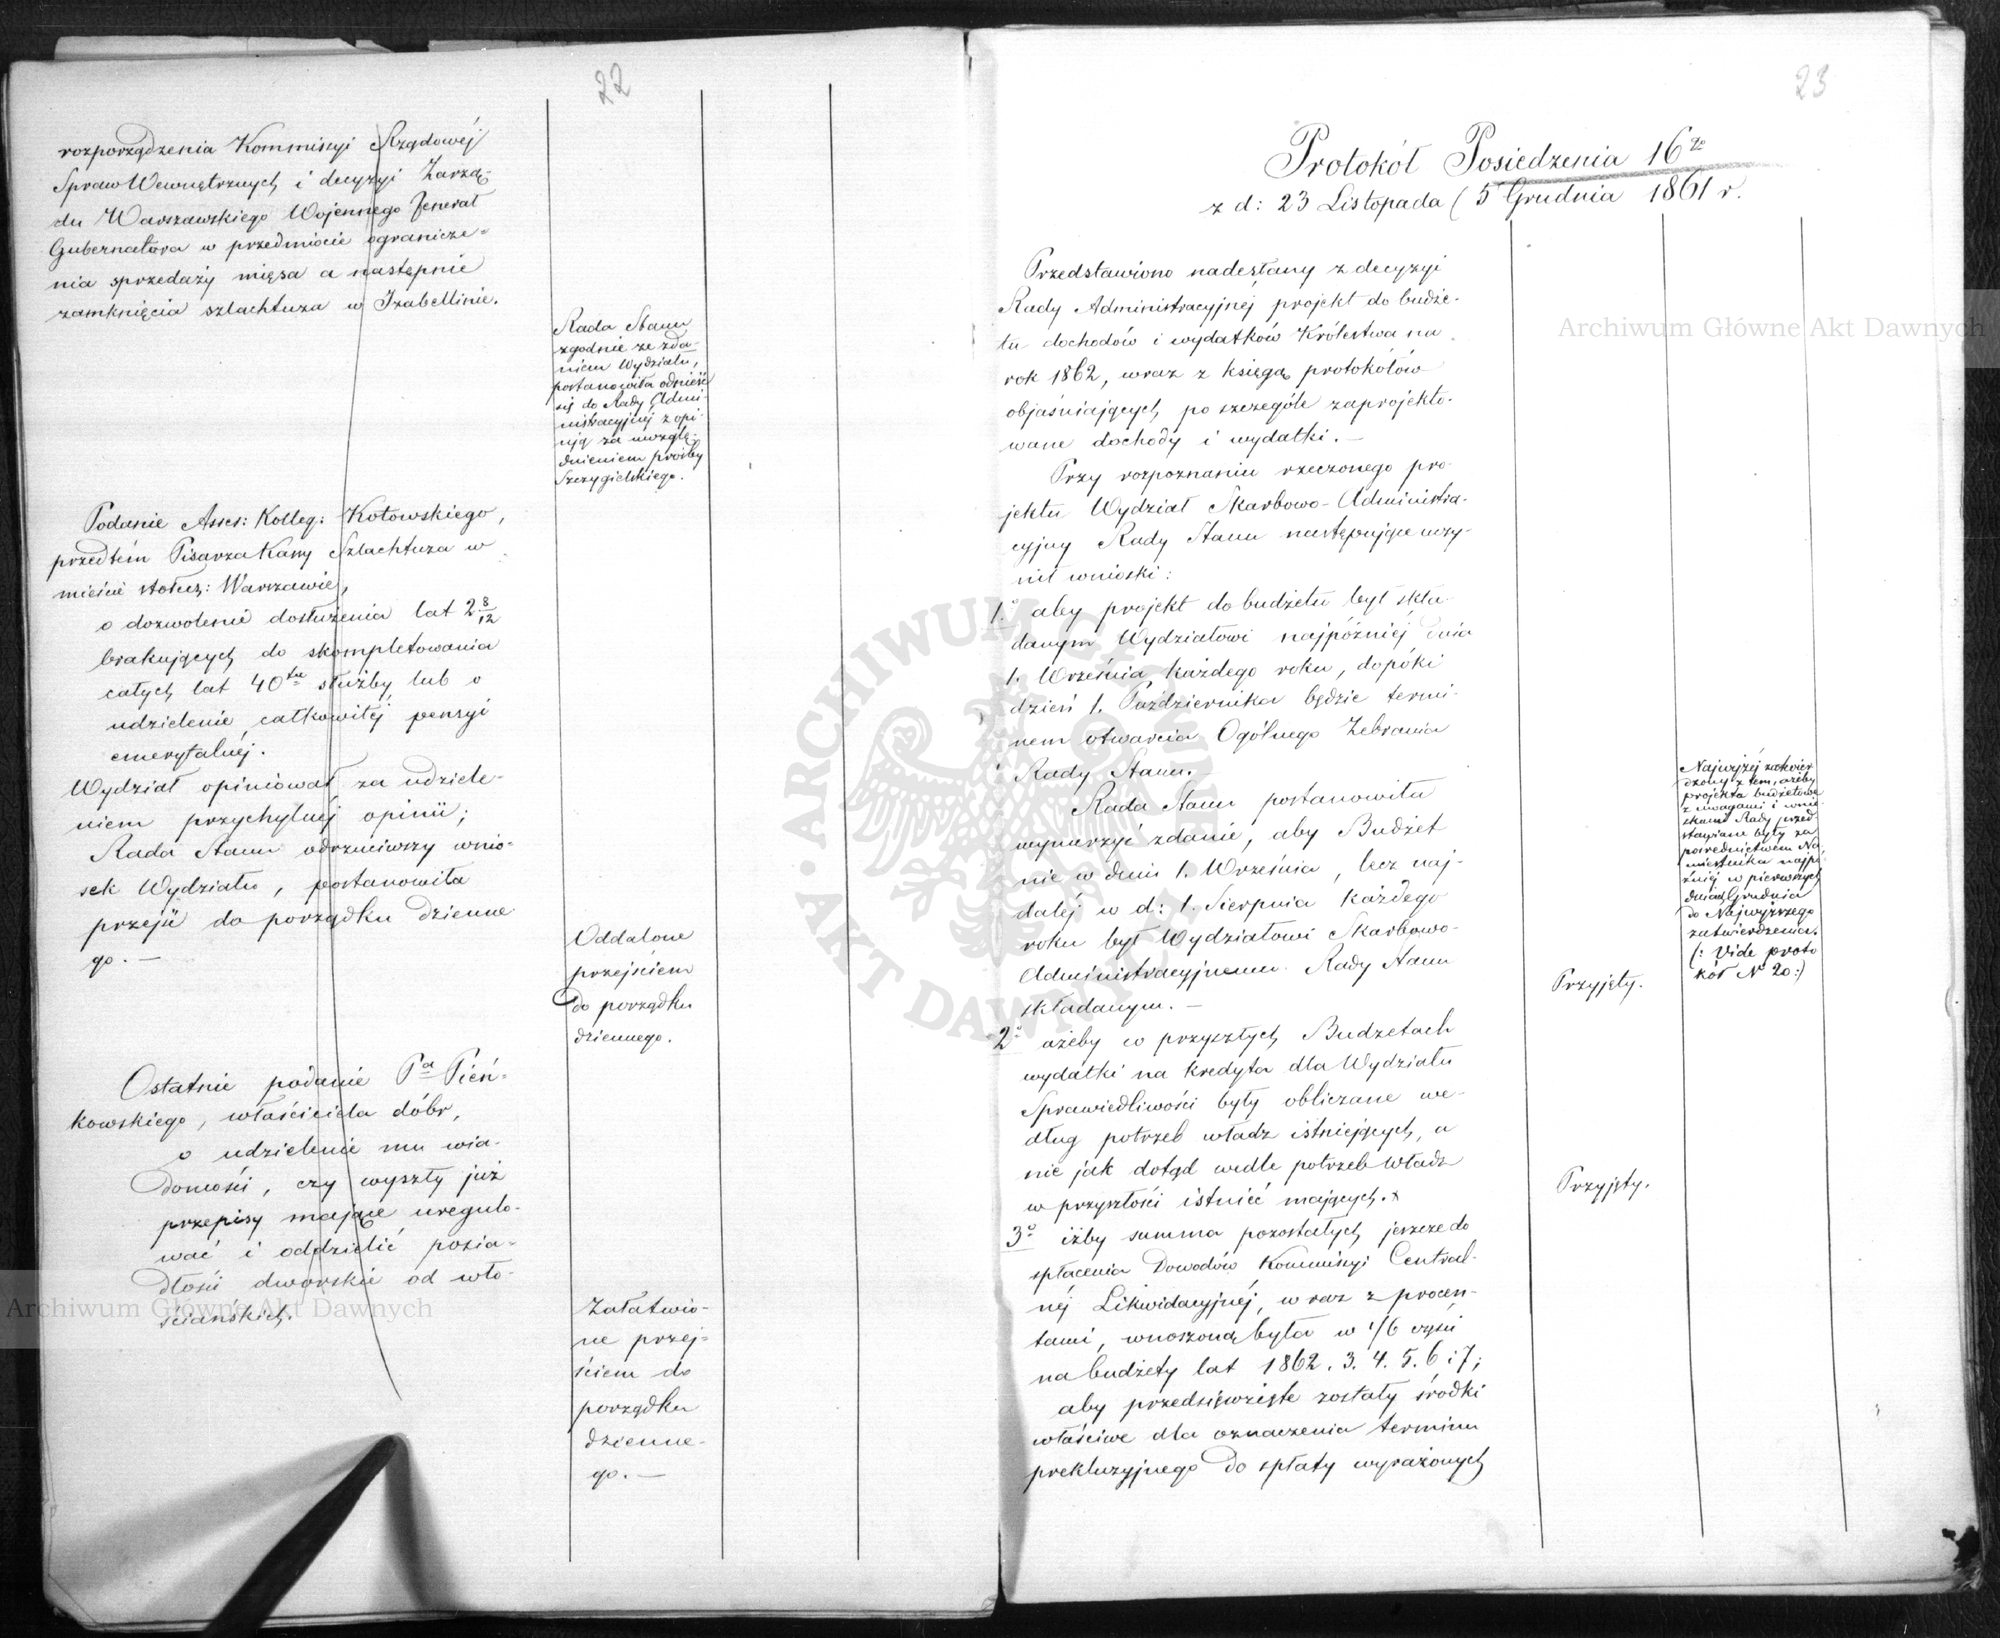 22
rozporządzenia Kommisyi Rządowéj
Spraw Wewnętrznych i decyzyi Zarzą-
du Warszawskiego Wojennego Jenerał
Gubernatora w przedmiocie ogranicze-
nia sprzedaży mięsa a następnie
zamknięcia szlachtuza w Izabellinie.
Rada Stanu
zgodnie ze zda-
niem Wydziału,
postanowiła odnieść
się do Rady Admi-
nistracyjnéj z opi-
niją za uwzglę-
dnieniem prośby
Szczygielskiego.
Podanie Asses: Kolleg: Kotowskiego,
przedtém Pisarza Kassy Szlachtuza w
mieście stołecz: Warszawie,
o dozwolenie dosłużenia lat 2 8/12
brakujących do skompletowania
całych lat 40tu służby lub o
udzielenie całkowitéj pensyi
emerytalnéj.
Wydział opiniował za udziele-
niem przychylnéj opinii;
Rada Stanu odrzuciwszy wnio-
sek Wydziału, postanowiła
przejść do porządku dzienne-
go. —
Oddalone
przejściem
do porządku
dziennego.
Ostatnie podanie Pa Pień-
kowskiego, właściciela dóbr,
o udzielenie mu wia-
domości, czy wyszły już
przepisy mające uregulo-
wać i oddzielić posia-
dłości dworskie od wło-
ściańskich.
Załatwio-
ne przej-
ściem do
porządku
dzienne-
go. —
23
Protokół Posiedzenia 16go
z d: 23 Listopada (5 Grudnia 1861 r.
Przedstawiono nadesłany z decyzyi
Rady Administracyjnéj projekt do budże-
tu dochodów i wydatków Królestwa na
rok 1862, wraz z księgą protokółów
objaśniających po szczególe zaprojekto-
wane dochody i wydatki. —
Przy rozpoznaniu rzeczonego pro-
jektu Wydział Skarbowo-Administra-
cyjny Rady Stanu następujące uczy-
nił wnioski:
1.o aby projekt do budżetu był skła-
danym Wydziałowi najpóźniej dnia
1. Września każdego roku, dopóki
dzień 1. Października będzie termi-
nem otwarcia Ogólnego Zebrania
Rady Stanu. —
Rada Stanu postanowiła
wynurzyć zdanie, aby Budżet
nie w dniu 1. Września, lecz naj-
daléj w d: 1. Sierpnia każdego
roku był Wydziałowi Skarbowo-
Administracyjnemu Rady Stanu
składanym. —
Przyjęty.
Najwyżéj zatwier
dzony z tem, ażeby
projekta budżetowe
z uwagami i wnio-
skami Rady przed-
stawiane były za
pośrednictwem Na-
miestnika najpó-
źniéj w pierwszych
dniach Grudnia
do Najwyższego
zatwierdzenia.
(: Vide proto
kół No 20:)
2o ażeby w przyszłych Budżetach
wydatki na kredyta dla Wydziału
Sprawiedliwości były obliczane we-
dług potrzeb władz istniejących, a
nie jak dotąd wedle potrzeb władz
w przyszłości istnieć mających.
Przyjęty.
3o iżby summa pozostałych jeszcze do
spłacenia Dowodów Kommisyi Central-
néj Likwidacyjnéj, wraz z procen-
tami, wnoszoną była w 1/6 części
na budżety lat 1862. 3. 4. 5. 6 i 7;
aby przedsięwzięte zostały środki
właściwe dla oznaczenia terminu
prekluzyjnego do spłaty wyrażonych
Archiwum Główne Akt Dawnych
Archiwum Główne Akt Dawnych
ARCHIWUM GŁÓWNE AKT DAWNYCH